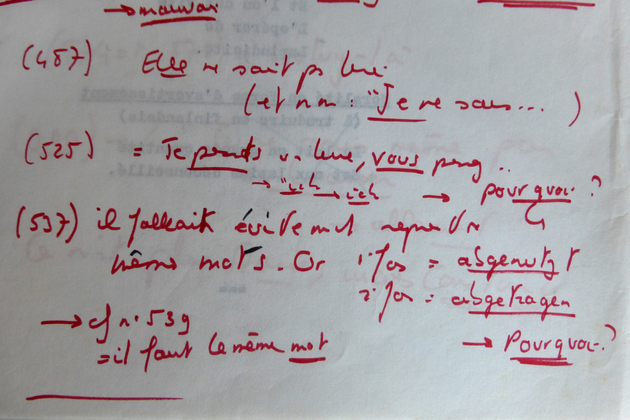 → mauvais
(487) Elle ne sait ps lire
(et non "Je ne sais... )
(525) = Je prends un livre, vous prenez ..
→ "ich → ich → pourquoi ?
(537) il fallait évidemment reprendre
même mots. Or 1° fois = abgenutzt
2° fois = abgetragen
→ cf n° 539
= il faut le même mot → Pourquoi ?